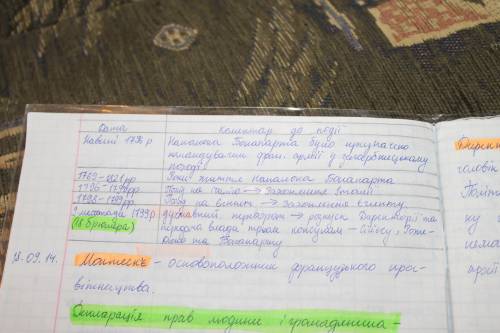 Дата Коментар до події
Навесні 1796 р Наполеона Бонапарта було призначено
командувачем фран. армії у
поході
1769-1821рр Роки життя Наполеона Бонапарта
1796-1797рр Похід на Італію → Захоплення Італії
1798-1799рр Похід на Єгипет → Захоплення Єгипту
9 листопада 1799р державний переворот → розпуск Директорії та
(18 Брюмера) передача влади трьом консулам – Сійєсу, Роже-
Дюко та Бонапарту
18.09.14. Монтеск'є – основоположник французького прос-
вітництва.
Декларація прав людини і громадянина –
Дирек
чоловік
Політ
ку
нема